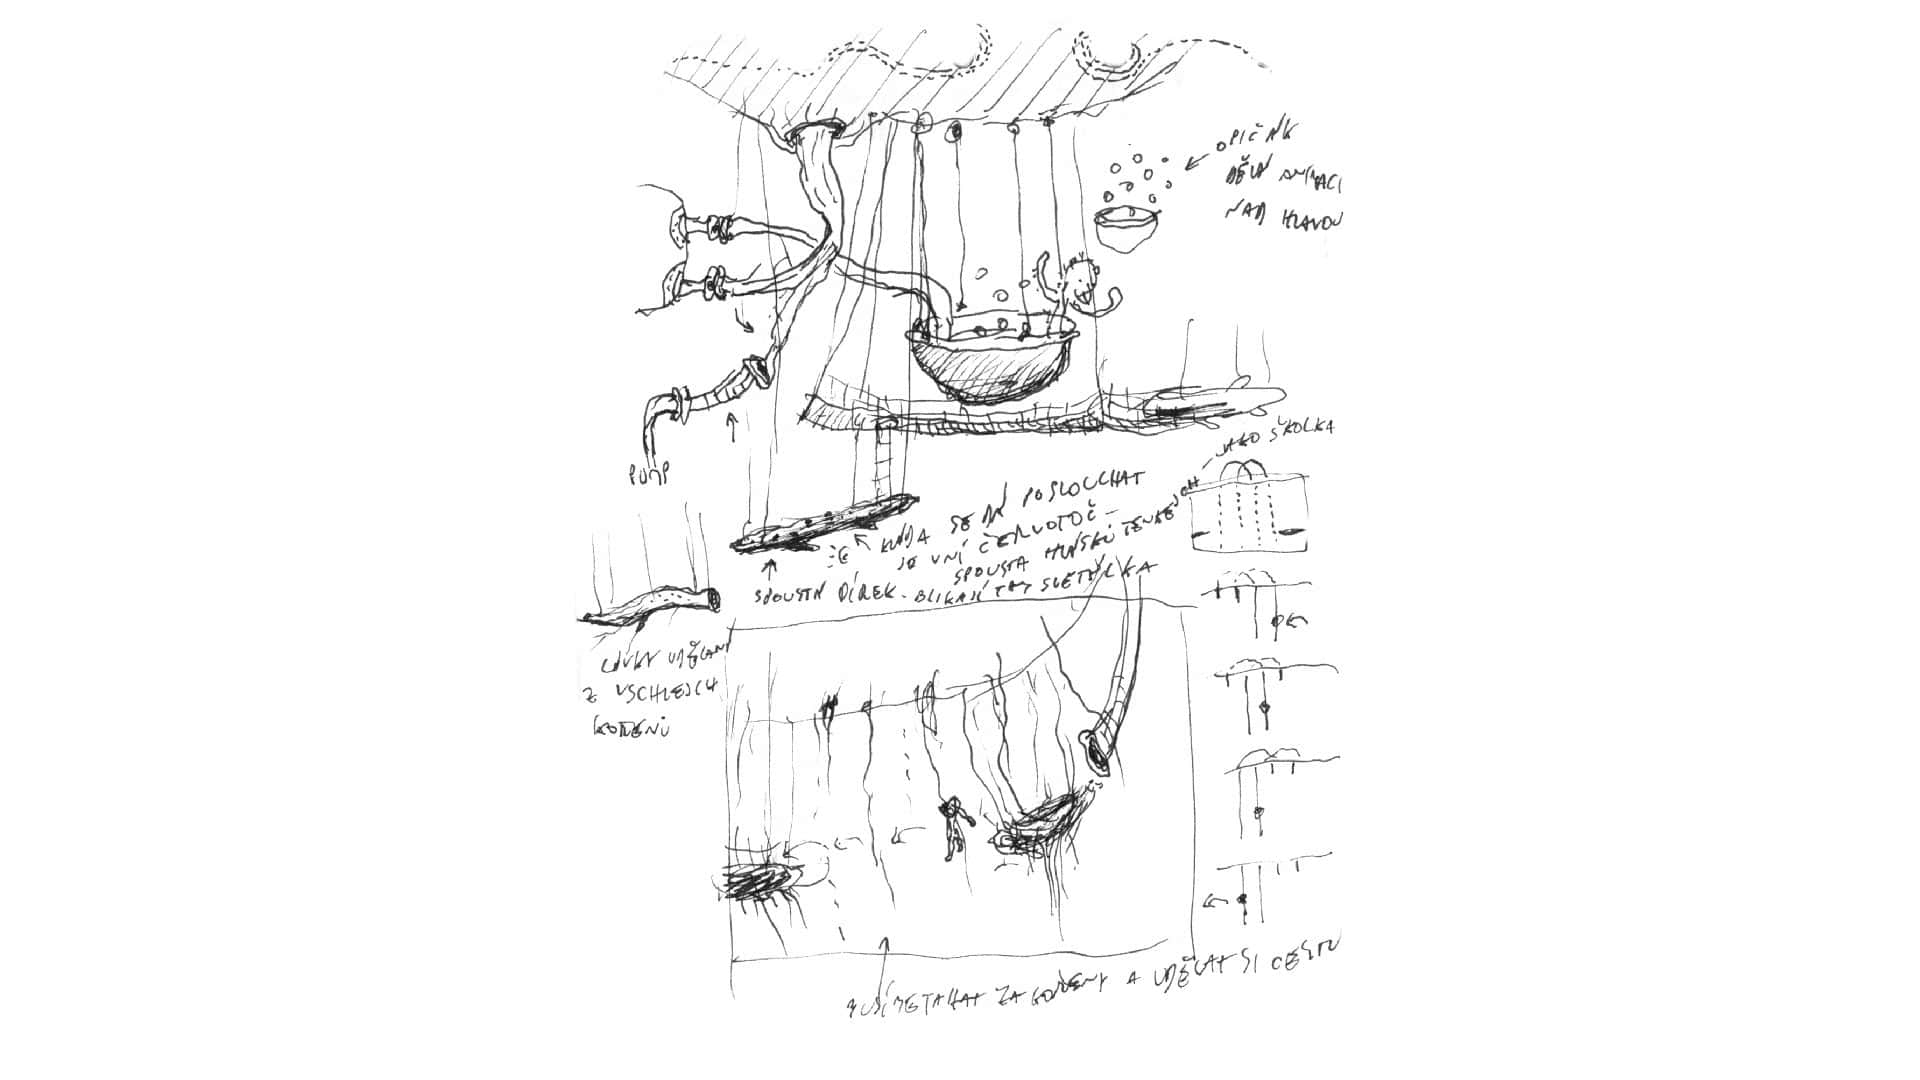 OPIČÁK
DĚLÁ ANIMACI
NAD HLAVOU
PUMP
JAKO ŠKOLKA
KLÁDA SE DÁ POSLOUCHAT
JE V NÍ ČERVOTOČ -
SPOUSTA HLÁSKŮ TENKEJCH
SPOUSTA DÍREK - BLIKAJÍ TAM SVĚTÝLKA
LÁVKY UDĚLANÝ
Z USCHLEJCH
KOŘENŮ
MUSÍ ZETAHAT ZA KOŘENY A UDĚLAT SI CESTU